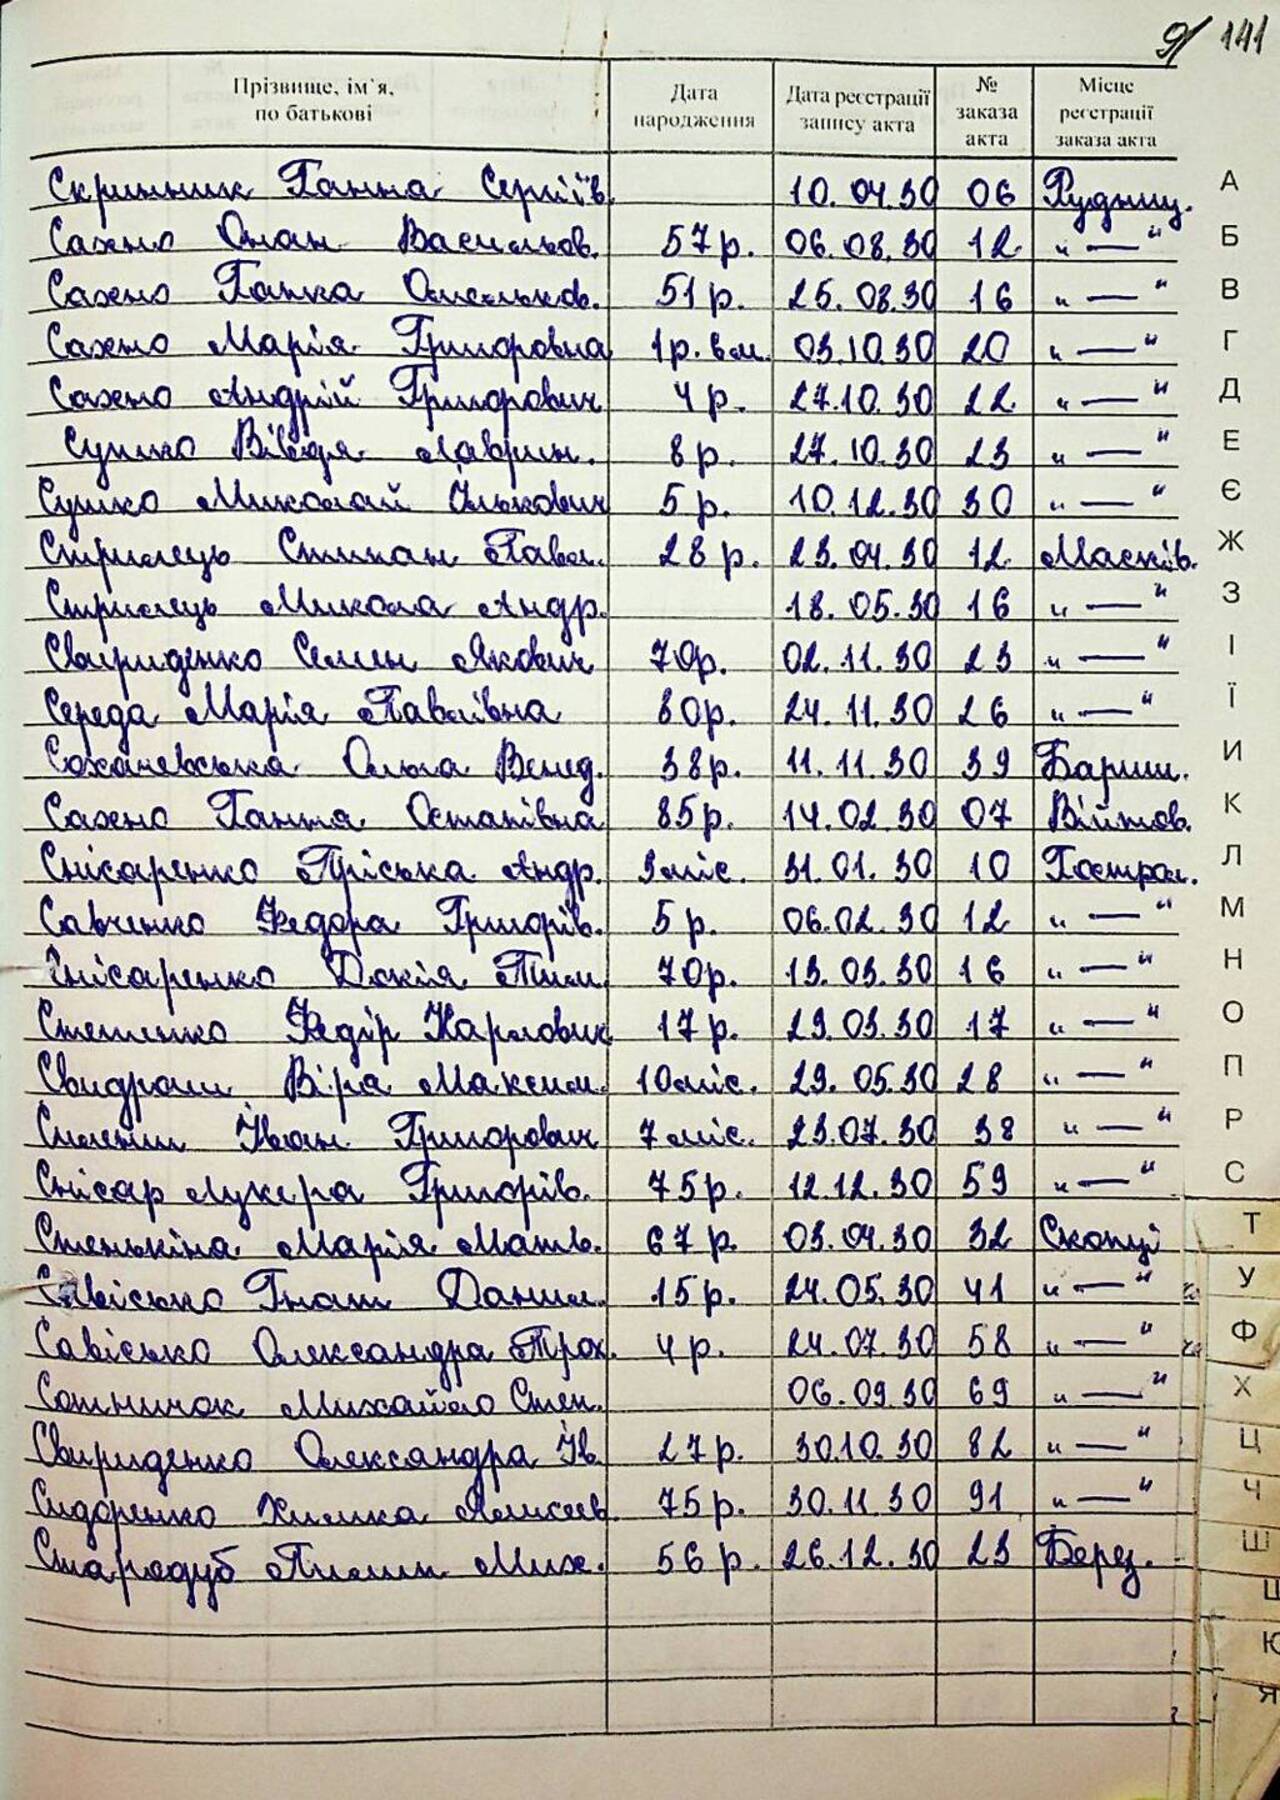 9/ 141
Прізвище, ім`я, по батькові Дата народження Дата реєстрації запису акта № заказа акта Місце реєстрації заказа акта
Скринник Ганна Сергіїв. 10.04.30 06 Рудниц.
Сахно Онан Васильков. 57 р. 06.08.30 12 "—"
Сахно Ганна Омельков. 51 р. 25.08.30 16 "—"
Сахно Марія Григоровна 1 р. 8 м. 03.10.30 20 "—"
Сахно Андрій Григорович 4 р. 27.10.30 22 "—"
Сушко Вівдя Лаврин. 8 р. 27.10.30 23 "—"
Сушко Миколай Ількович 5 р. 10.12.30 30 "—"
Стрилець Степан Павл. 28 р. 23.04.30 12 Масків.
Стрилець Микола Андр. 18.05.30 16 "—"
Свириденко Семен Якович 70р. 02.11.30 23 "—"
Середа Марія Павлівна 80р. 24.11.30 26 "—"
Сохачевська Ольга Венед. 38р. 11.11.30 39 Бариш.
Сахно Ганна Остапівна 85р. 14.02.30 07 Війтов.
Снісаренко Пріська Андр. 3 міс. 31.01.30 10 Гострол.
Савченко Федора Григорів. 5 р. 06.02.30 12 "—"
Снісаренко Докія Тим. 70р. 13.03.30 16 "—"
Степенко Федір Карлович 17 р. 29.03.30 17 "—"
Свидрош Віра Максим. 10 міс. 29.05.30 28 "—"
Іван Григорович 7 міс. 23.07.30 38 "—"
Снісар Лукера Григорів. 75р. 12.12.30 59 "—"
Стенькіна Марія Матв. 67 р. 03.04.30 32 Скопці
Савісько Гнат Данил. 15 р. 24.05.30 41 "—"
Савісько Олександра Трох. 4 р. 24.07.30 58 "—"
Сотничок Михайло Степ. 06.09.30 69 "—"
Свириденко Олександра Ів. 27 р. 30.10.30 82 "—"
Сидоренко Химка 75 р. 30.11.30 91 "—"
Стародуб Пилип Мих. 56 р. 26.12.30 23 Берез.
А
Б
В
Г
Д
Е
Є
Ж
З
І
Ї
И
К
Л
М
Н
О
П
Р
С
Т
У
Ф
Х
Ц
Ч
Ш
Щ
Ю
Я